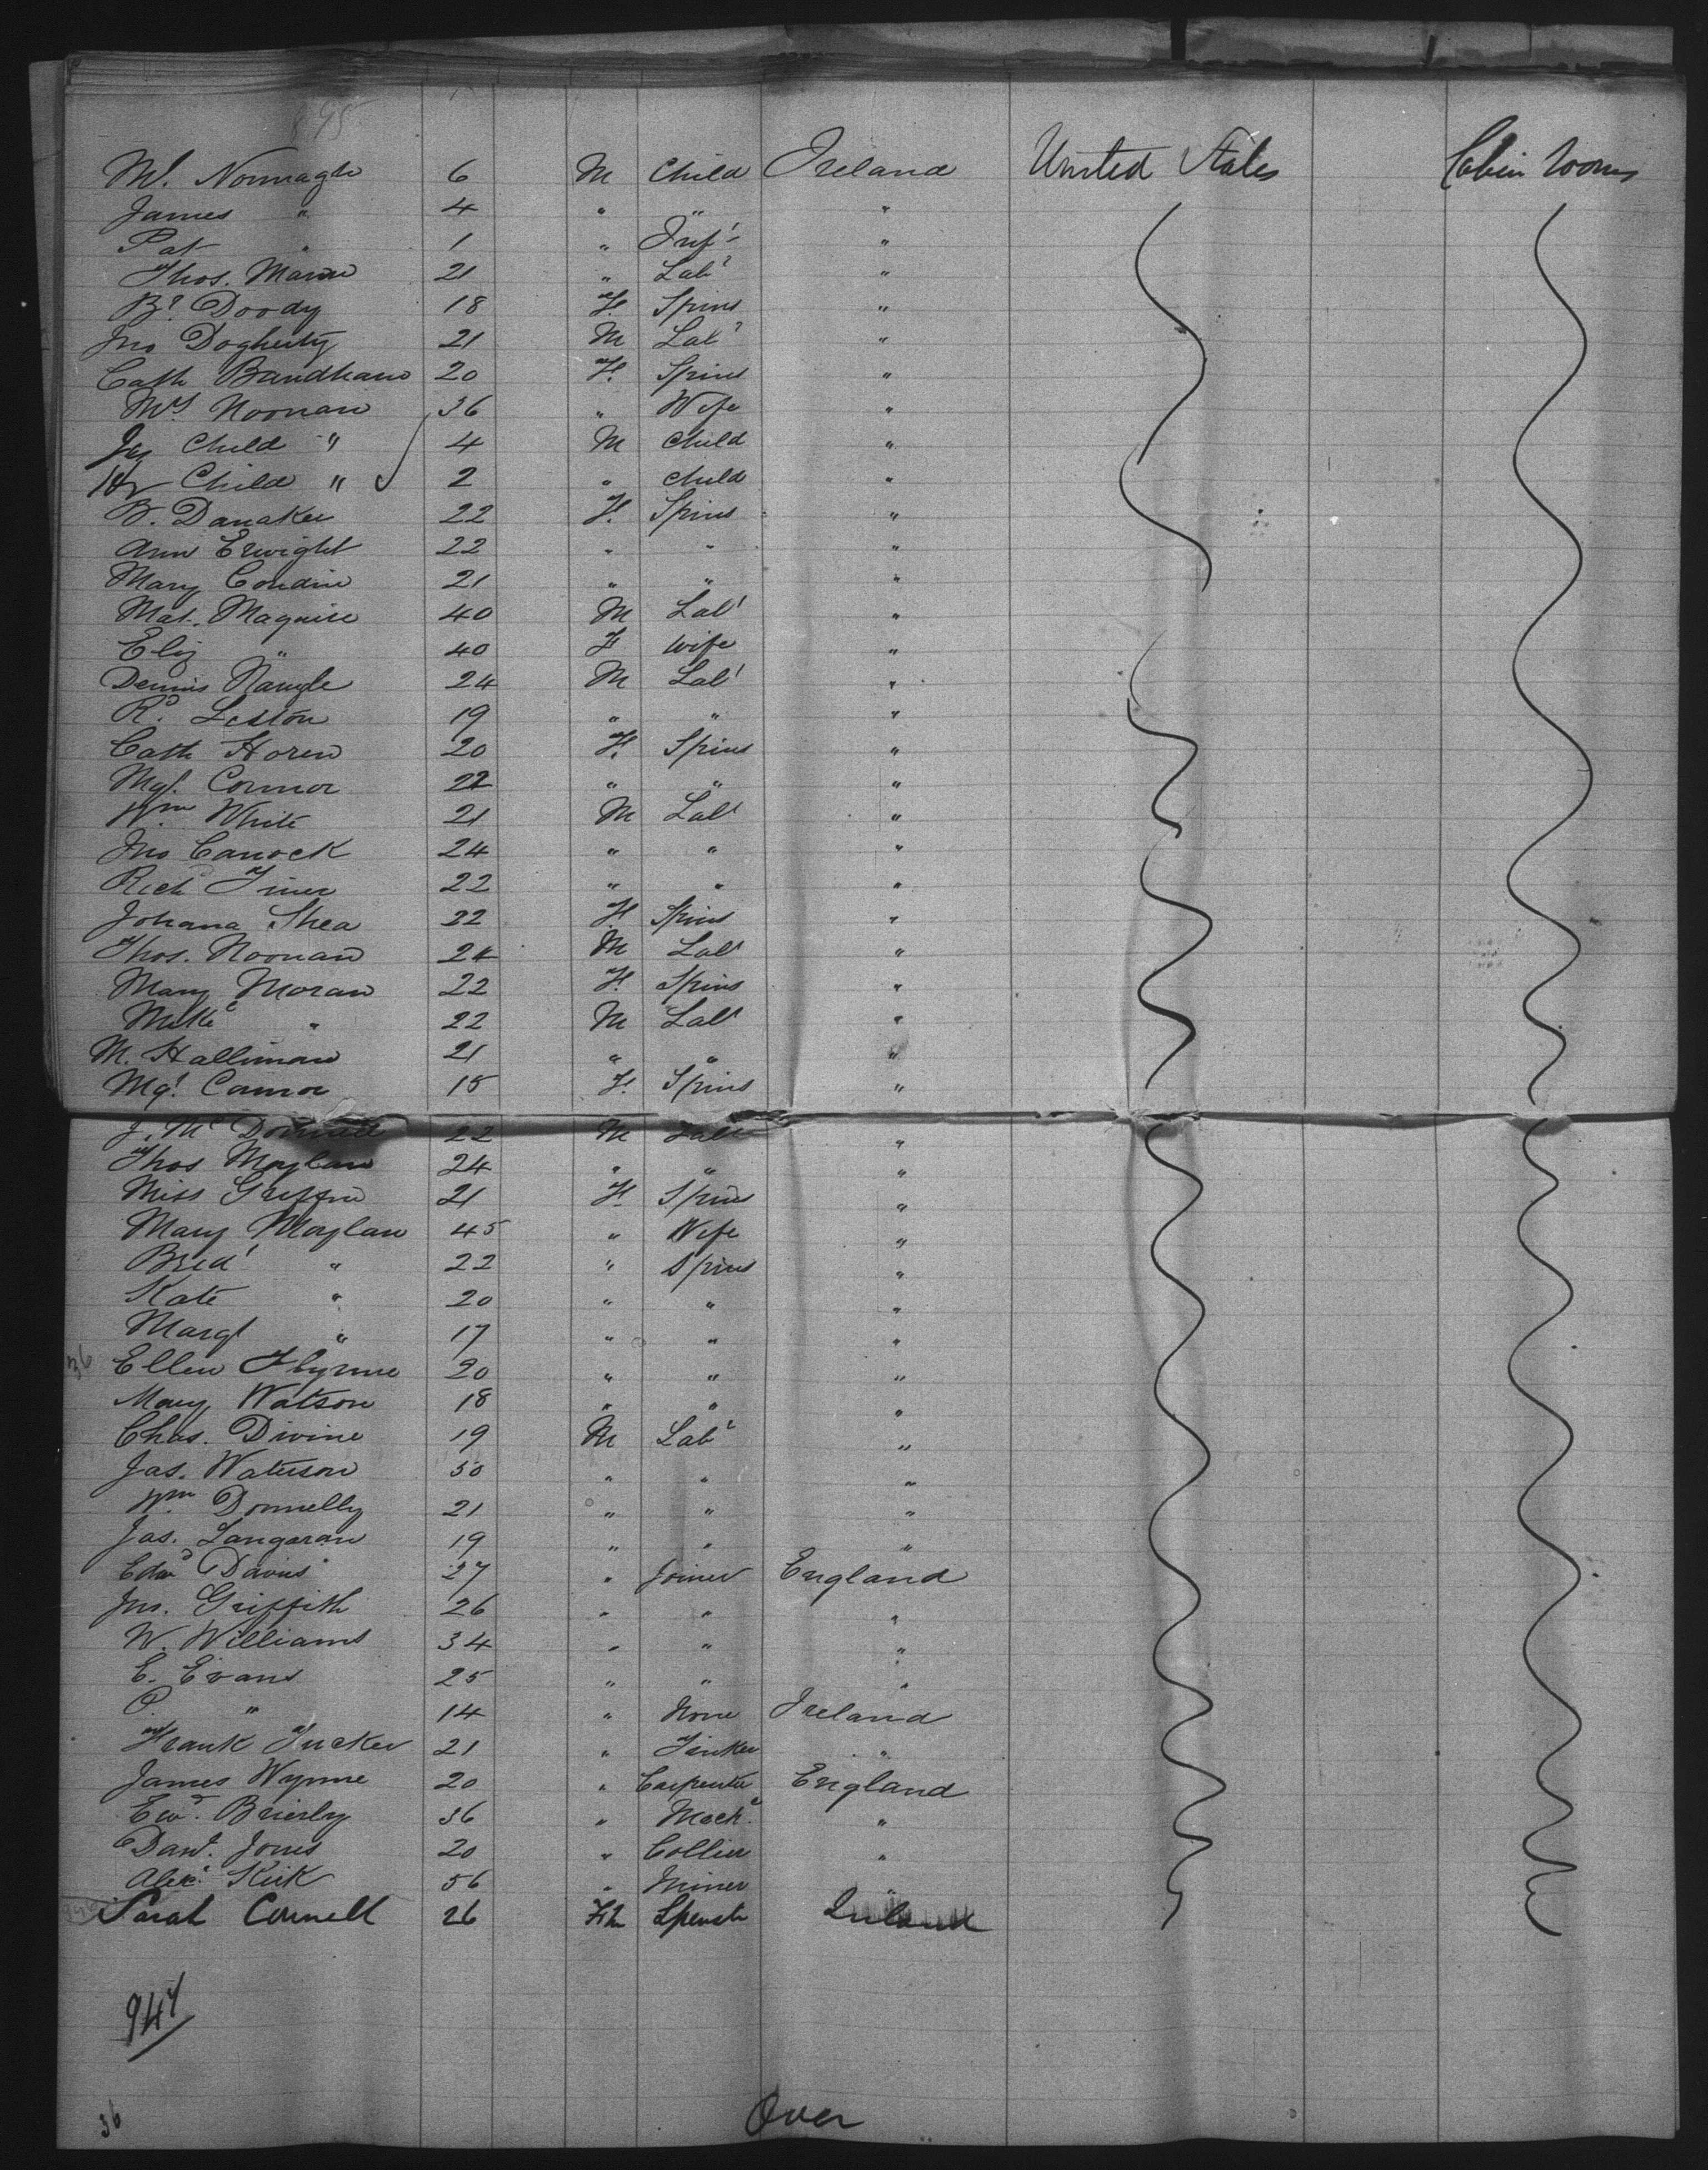 895
M. Nonnagle 6 M Child Ireland United States Cabin Rooms
James " 4 " " "
Pat " 1 " Inft "
Thos. Mann 21 " Labr "
Bt. Doody 18 F. Spins "
Jno Dogherty 21 M Labr "
Cath Bandhan 20 F. Spins "
Mrs Noonan 36 " Wife "
Jas Child " 4 M Child "
Child " 2 " Child "
B. Danaker 22 F. Spins "
Ann Erwight 22 " " "
Mary Condin 21 " " "
Mat. Maguire 40 M Labr "
Eliz " 40 F Wife "
Dennis Nangle 24 M Labr "
Rd. Leston 19 " " "
Cath Horen 20 F. Spins "
Mgt. Connor 22 " " "
Wm White 21 M Labr "
Jno Canock 24 " " "
Richd Finer 22 " " "
Johana Shea 22 F. Spins "
Thos. Noonan 24 M Labr "
Mary Moran 22 F. Spins "
Mike " 22 M Labr "
M. Hallinan 21 " " "
Mgt. Connor 18 F. Spins "
J. McDonnell 22 M Labr "
Thos Moylan 24 " " "
Miss Griffin 21 F Spins "
Mary Moylan 45 " Wife "
Bridt " 22 " Spins "
Kate " 20 " " "
Margt " 17 " " "
36 Ellen Flynne 20 " " "
Mary Watson 18 " " "
Chas. Divine 19 M Labr "
Jas. Waterson 50 " " "
Wm Donnelly 21 " " "
Jas. Langaran 19 " " "
Edwd Davies 27 " Joiner England
Jno. Griffith 26 " " "
W. Williams 34 " " "
E. Evans 25 " " "
O. " 14 " None Ireland
Frank Tucker 21 " Tinker "
James Wynne 20 " Carpenter England
Ewd. Brierly 36 " Mechc "
Danl. Jones 20 " Collier "
Alexr Kirk 56 " Miner "
Sarah Connell 26 Fm Spenstr Ireland
947
36 Over